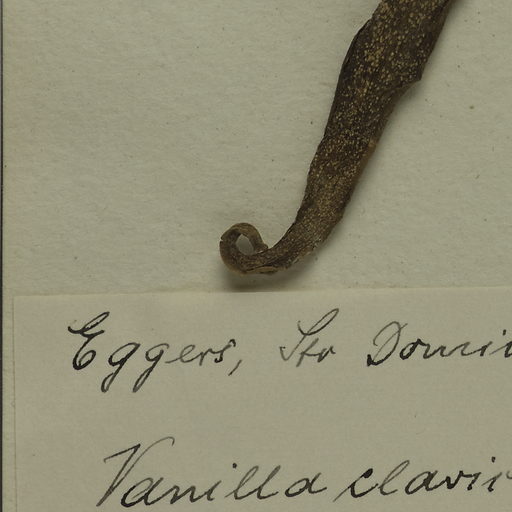 Eggers, Sto Domi
Vanilla clavi